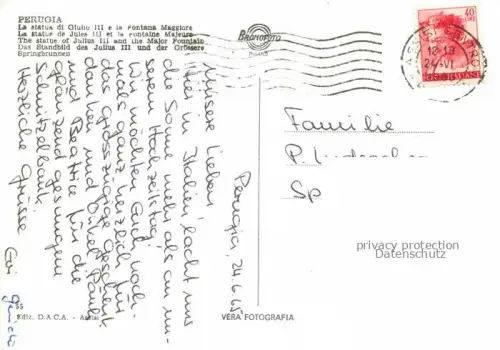 PERUGIA
La statua di Giulio III e la Fontana Maggiore
La statue de Jules III et la Fontaine Majeure
The statue of Julius III and the Major Fountain
Das Standbild des Julius III und der Grössere
Springbrunnen
BROMOFOTO
40
LIRE
POSTE ITALIANE
12-13
24-VI
Perugia, 24.6.65
Unsere Lieben,
Hier in Italien lacht uns
die Sonne mehr als an un-
serem Hochzeitstag.
Wir möchten Euch noch-
mals ganz herzlich für
das grosszügige Geschenk
danken und Onkel Paul
und Beatrice für die
glänzend gesungene
Schnitzelbank.
Herzliche Grüsse
Familie
P.
Sp
privacy protection
Datenschutz
55
Ediz. D.A.C.A. - Assisi
VERA FOTOGRAFIA